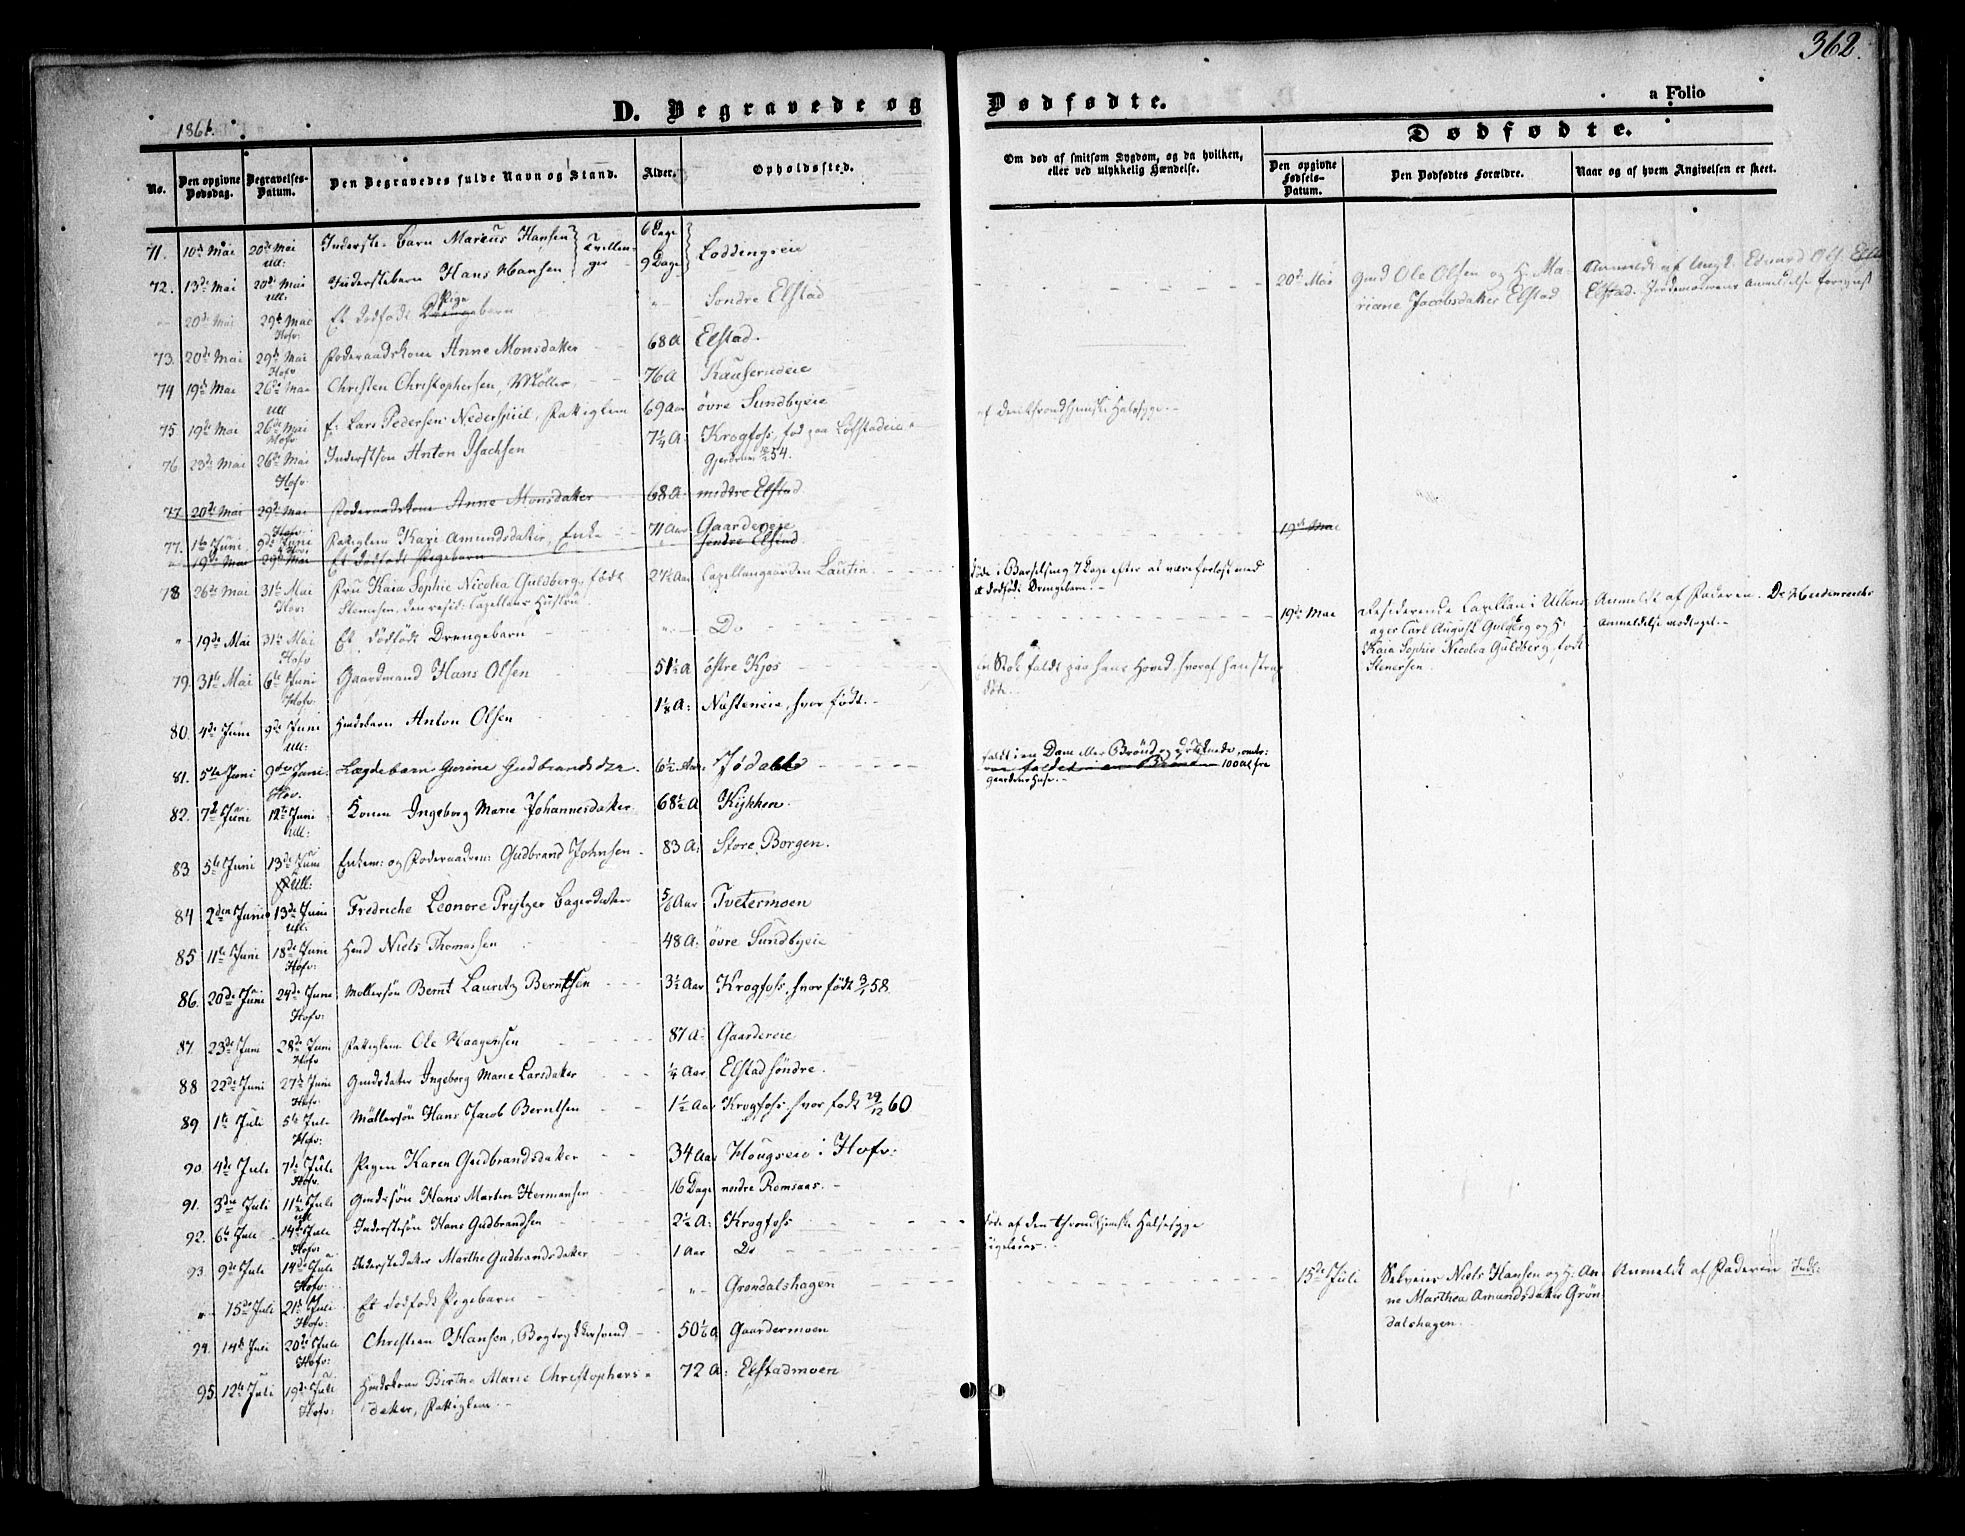 362.
D. Begravede og Dødfødte.
a Folio
1861.
Dødfødte.
No.
Den opgivne Dødsdag.
Begravelses-Datum.
Den Begravedes fulde Navn og Stand.
Alder.
Opholdssted.
Om død af smitsom Sygdom, og da hvilken, eller ved ulykkelig Hændelse.
Den opgivne Fødsels-Datum.
Den Dødfødtes Forældre.
Naar og af hvem Angivelsen er skeet.
71. 10de Mai 20de Mai Ull: Inderste-barn Marcus Hansen 6 Dage Loddengseie
Tvillenger
72. 13de Mai 20de Mai Ull: Inderstebarn Hans Hansen 9 Dage
20de Mai 29de Mai Hofv. Et dødfødt Pige Drengebarn " Søndre Elstad
20de Mai Gmd Ole Olsen og H. Mariane Jacobsdatter Elstad
Anmeldt af Elstad. Jordemoderens Anmeldelse
73. 20de Mai 29de Mai Hofv Føderaadskone Anne Monsdatter 68 A Elstad.
74 19de Mai 26de Mai Ull Christen Christophersen, Møller 76 A
75 19de Mai 26de Mai Hofv. Lars Pedersen Fattiglem 69 Aar øvre Sundbyeie
76. 23de Mai 26de Mai Hofv Inderstsøn Anton Isachsen 7¼ A: Krogfoss, fød paa
Gjerdrum 54.
af den throndhjemske Halssyge.
77. 20de Mai 29de Mai Føderaadskone Anne Monsdatter 68 A: midtre Elstad
77. 1te Juni 9de Juni Hofv Fattiglem Kari Amundsdatter, Enke 71 Aar Gaardereie
19de Mai 29de Mai Et dødfødt Pigebarn søndre Elstad
19de Mai
78 26de Mai 31te Mai Hov: Fru Kaia Sophie Nicolea Guldberg, født
Stenersen, den resid: Capellans Hustru. 27½ Aar Capellangaarden Lautin
døde i Barselseng 7 Dage efter at være forløst med
et dødfødt Drengebarn.
" 19de Mai 31te Mai Hofv Et dødfødt Drengebarn " Do
19de Mai Residerende Capellan i Ullens-
ager Carl August Guldberg og H:
Kaia Sophie Nicolea Guldberg, født
Stenersen.
Anmeldt af Faderen. Dr
Anmeldelse modtaget.
79. 31te Mai 6te Juni Hofv. Gaardmand Hans Olsen 51½ A østre Kjos
En Stok faldt paa hans Hoved, hvoraf han strax
døde.
80. 4de Juni 9de Juni Ull: Husbarn Anton Olsen 1⅛ A: Næsteneie, hvor født.
81. 5te Juni 9de Juni Hov. Lægdebarn Gurine Gudbrandsdtr. 6½ Aar Jødahl
faldt i en Dam eller Brønd og druknede, omtr:
100 Al fra
Gaardens Huse.
82. 7de Juni 12te Juni Ull: Konen Ingeborg Marie Johannesdatter 68½ A Kykken
83. 5te Juni 13de Juni Ull: Enkem: og Føderaadsm: Gudbrand Johnsen 83 A: Store Borgen.
84 2den Juni 13de Juni Ull: Fredriche Leonore Prytzer Bagerdatter 5/6 Aar Tvetermoen
85 11te Juni 18de Juni Hofv: Hmd Niels Thomassen 48 A: øvre Sundbyeie
86. 20de Juni 24de Juni Hofv: Møllersøn Bernt Lauritz Berntsen 3½ Aar Krogfoss, hvor født 3/1 58
87. 23de Juni 28de Juni Hofv Fattiglem Ole Haagensen 87 A: Gaardereie
88 22de Juni 27de Juni Hofv. Gmdsdatter Ingeborg Marie Larsdatter ¼ Aar Elstad søndre.
89 1te Juli 5te Juli Hofv: Møllersøn Hans Jacob Berntsen 1½ Aar Krogfoss, hvor født 29/12 60
90. 4de Juli 7de Juli Hofv. Pigen Karen Gudbrandsdatter 34 Aar Hougseie i Hofv:
91. 3die Juli 11te Juli Ull Gmdssøn Hans Martin Hermansen 16 Dage nordre Romsaas.
92. 6te Juli 14de Juli Hofv: Inderstesøn Hans Gudbrandsen 2½ A: Krogfoss
døde af den throndhjemske Halssyge
93. 9de Juli 14de Juli Hofv: Inderstedatter Marthe Gudbrandsdatter 1 Aar Do
ligeledes.
" 15de Juli 21de Juli Hofv: Et dødfødt Pigebarn " Grøndalshagen
15de Juli Selveier Niels Hansen og H: An-
ne Marthea Amundsdatter Grøn-
dalshagen.
Anmeldt af Faderen
94. 14de Juli 20de Juli Hofv: Christian Hansen, Bogtrykkersvend 50⅙ A Gaardermoen
95. 12te Juli 19de Juli Hofv: Huuskone Birthe Marie Christophers-
datter, Fattiglem. 72 A: Elstadmoen